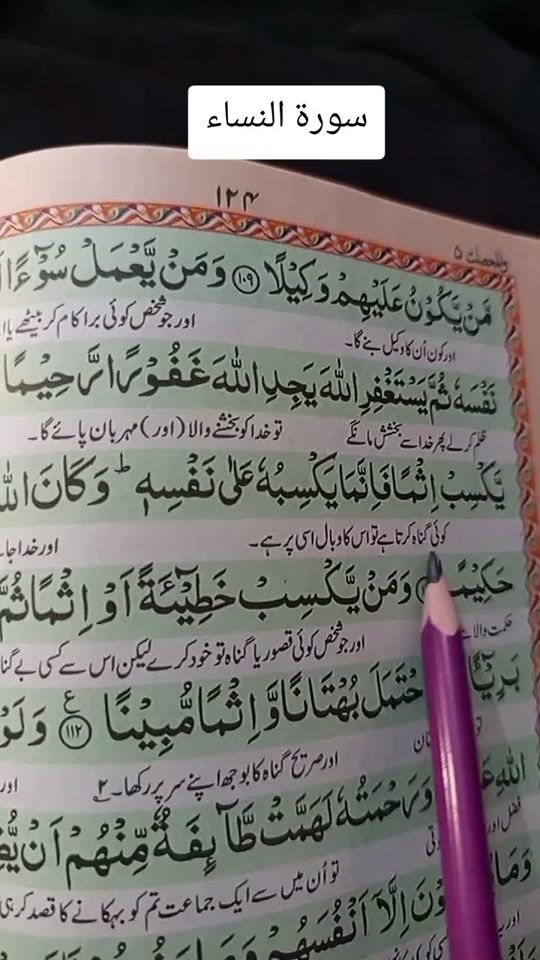 سورة النساء
١٢٤
والمحصنت ۵
مَّنْ يَّكُوْنُ عَلَيْهِمْ وَكِيْلًا ﴿۱۰۹﴾ وَمَنْ يَّعْمَلْ سُوْٓءًا
اور کون اُن کا وکیل بنے گا۔ اور جو شخص کوئی برا کام کر بیٹھے یا
نَفْسَهٗ ثُمَّ يَسْتَغْفِرِ اللّٰهَ يَجِدِ اللّٰهَ غَفُوْرًا رَّحِيْمًا
ظلم کر لے پھر خدا سے بخشش مانگے تو خدا کو بخشنے والا (اور) مہربان پائے گا۔
يَّكْسِبْ اِثْمًا فَاِنَّمَا يَكْسِبُهٗ عَلٰى نَفْسِهٖ ؕ وَكَانَ
کوئی گناہ کرتا ہے تو اس کا وبال اسی پر ہے۔ اور خدا
حَكِيْمًا وَمَنْ يَّكْسِبْ خَطِيْٓئَةً اَوْ اِثْمًا ثُمَّ
حکمت والا ہے اور جو شخص کوئی قصور یا گناہ تو خود کرے لیکن اس سے کسی بے
احْتَمَلَ بُهْتَانًا وَّاِثْمًا مُّبِيْنًا ﴿۱۱۲﴾ ع وَلَوْ
تو اور صریح گناہ کا بوجھ اپنے سر پر رکھا۔ ۲ اور
اللّٰهِ وَرَحْمَتُهٗ لَهَمَّتْ طَّآئِفَةٌ مِّنْهُمْ اَنْ
فضل اور تو اُن میں سے ایک جماعت تم کو بہکانے کا قصد کر ہی
وَمَا اِلَّآ اَنْفُسَهُمْ